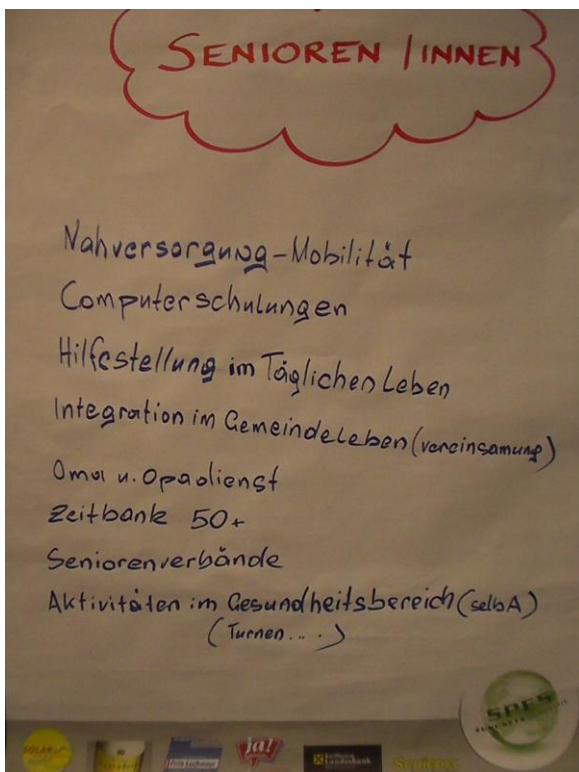 SENIOREN / INNEN
Nahversorgung - Mobilität
Computerschulungen
Hilfestellung im Täglichen Leben
Integration im Gemeindeleben (vereinsamung)
Oma u. Opadienst
Zeitbank 50+
Seniorenverbände
Aktivitäten im Gesundheitsbereich (selbA)
(Turnen ....)
SPES
SOLAR
ja!
Landesbank